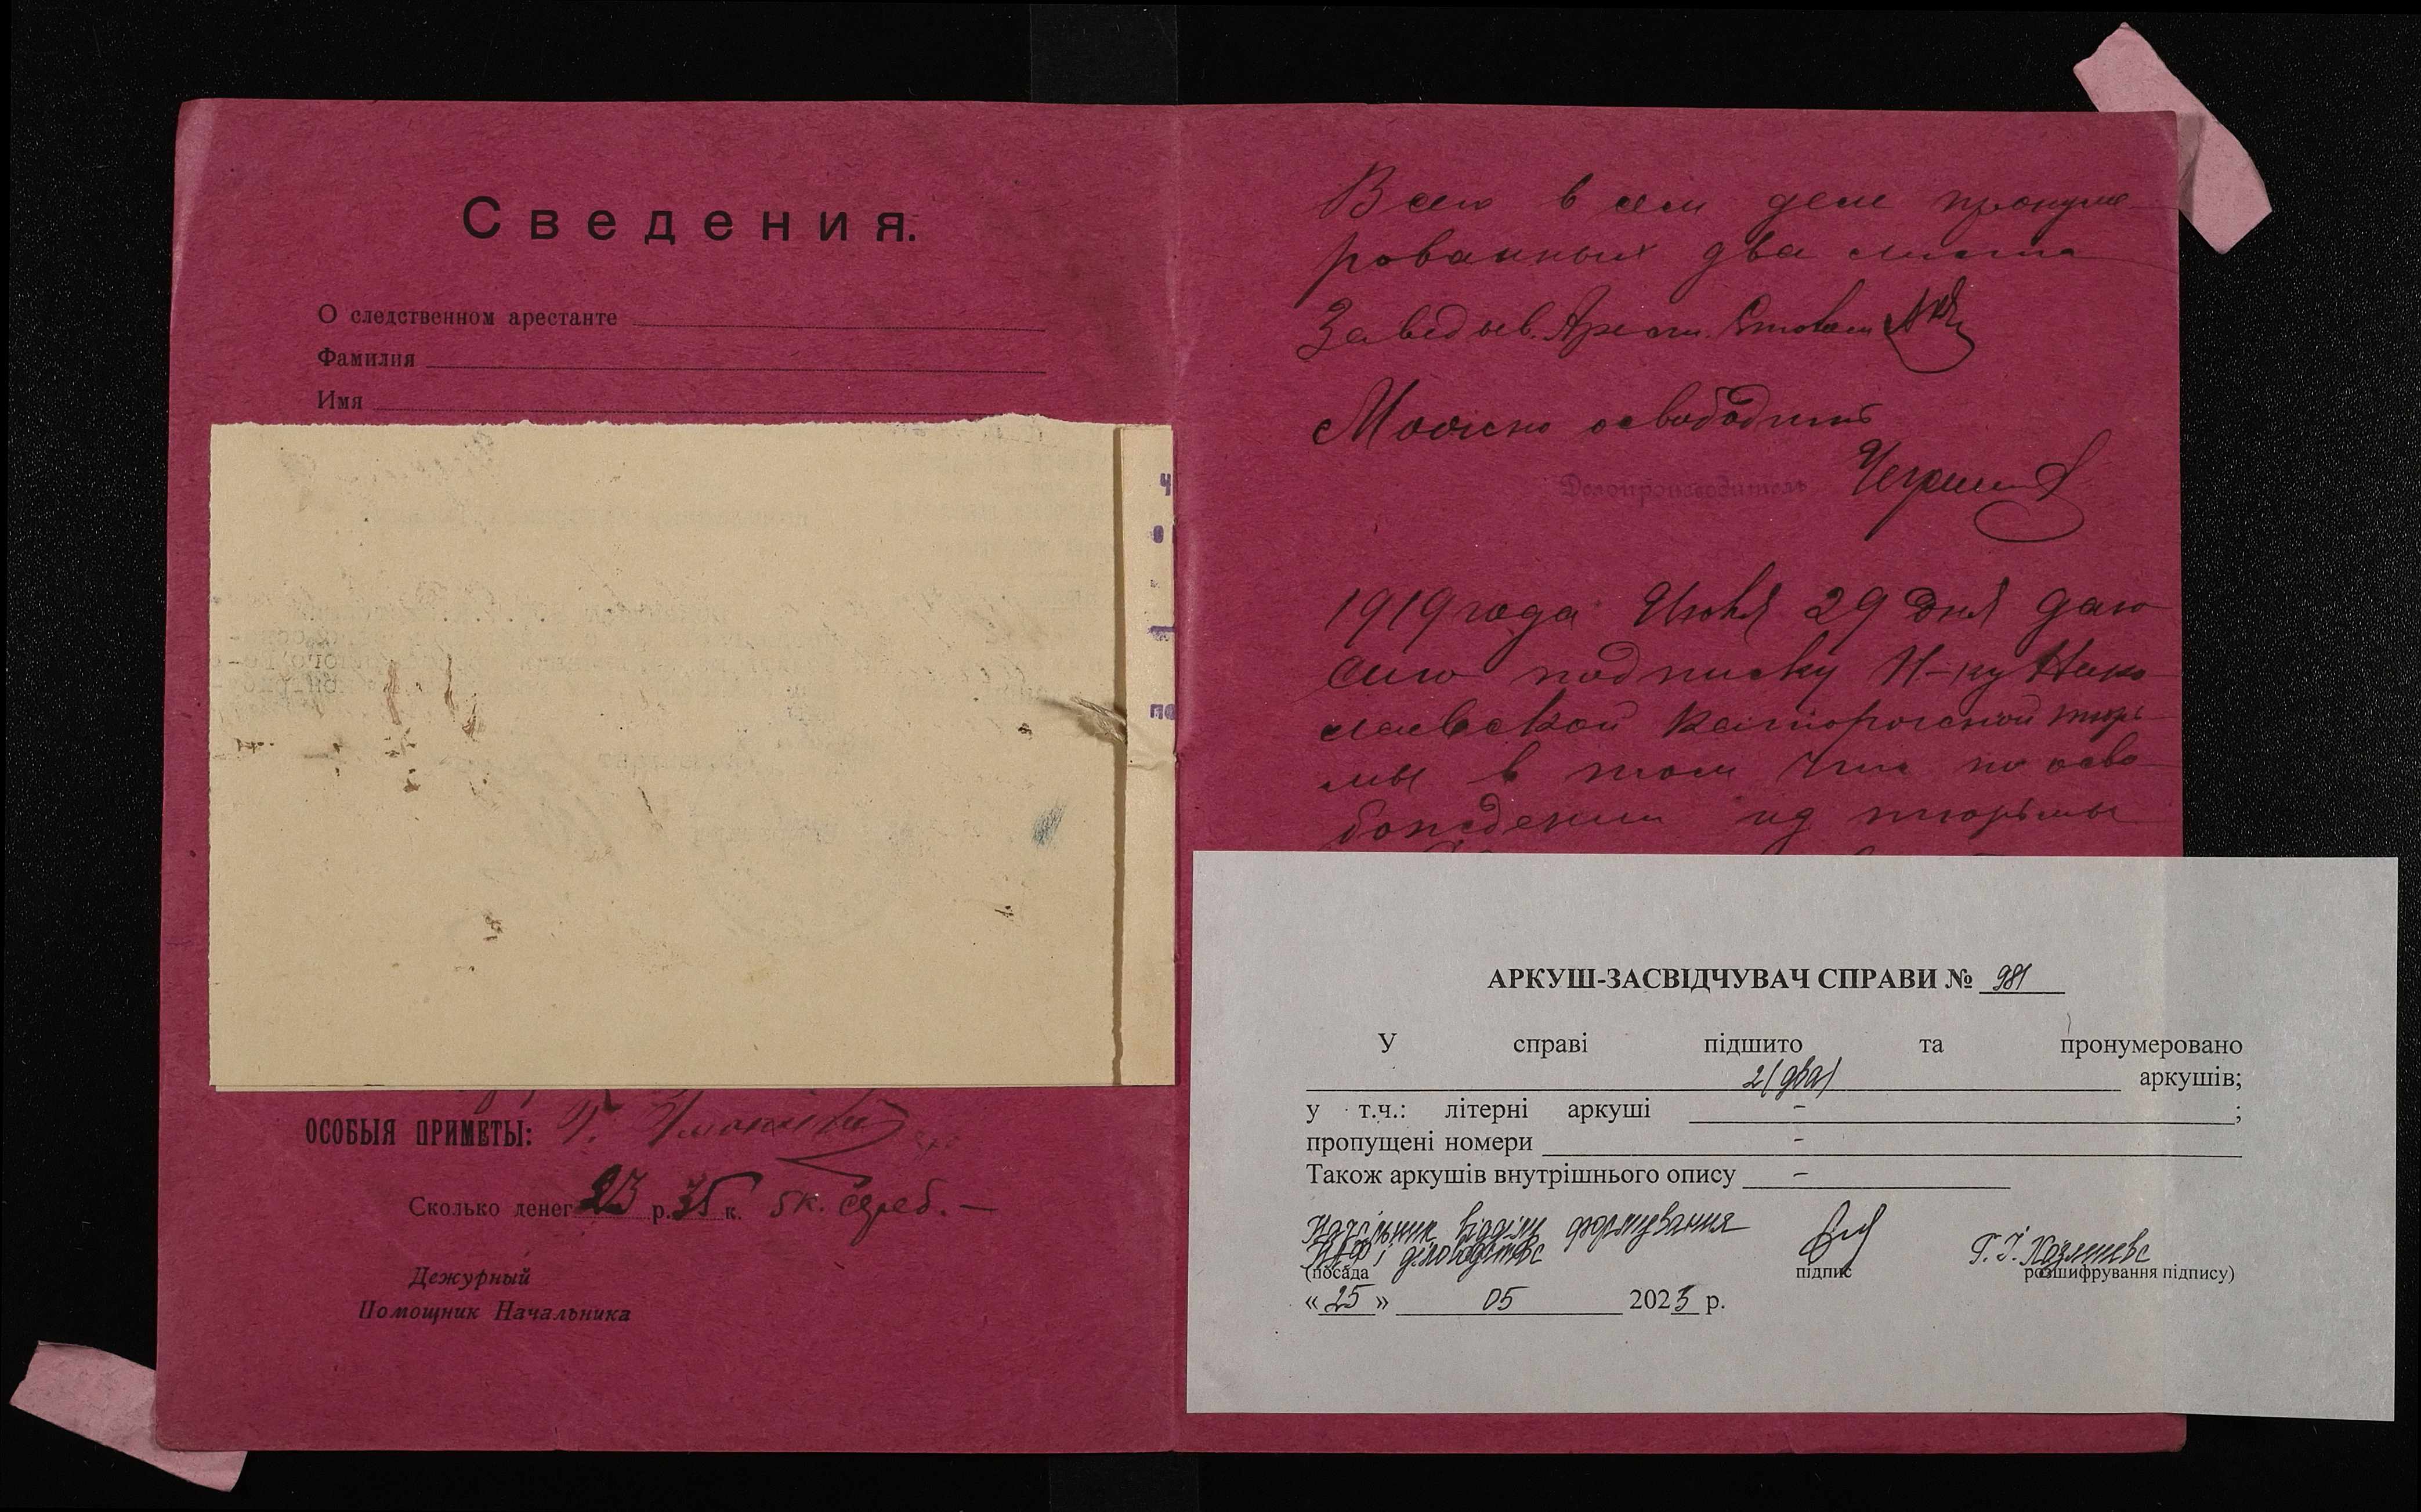 Сведения.
О следственном арестанте
Фамилия
Имя
ОСОБЫЯ ПРИМЕТЫ: Г.
Сколько денег 23 р. 35 к. 5 к. сереб. —
Дежурный
Помощник Начальника
Всего в сем деле пронуме
рованных два листа
Заведыв. Арест. Столом
Можно освободить
Делопроизводитель
1919 года Июня 29 дня даю
сию подписку Н-ку Нико
лаевской Каторжной тюрь
мы в том что по осво
бождении из тюрьмы
АРКУШ-ЗАСВІДЧУВАЧ СПРАВИ № 981
У справі підшито та пронумеровано
2 (два) аркушів;
у т.ч.: літерні аркуші - ;
пропущені номери -
Також аркушів внутрішнього опису -
Начальник відділу формування
НАФ і діловодства
(посада підпис розшифрування підпису)
« 25 » 05 2023 р.